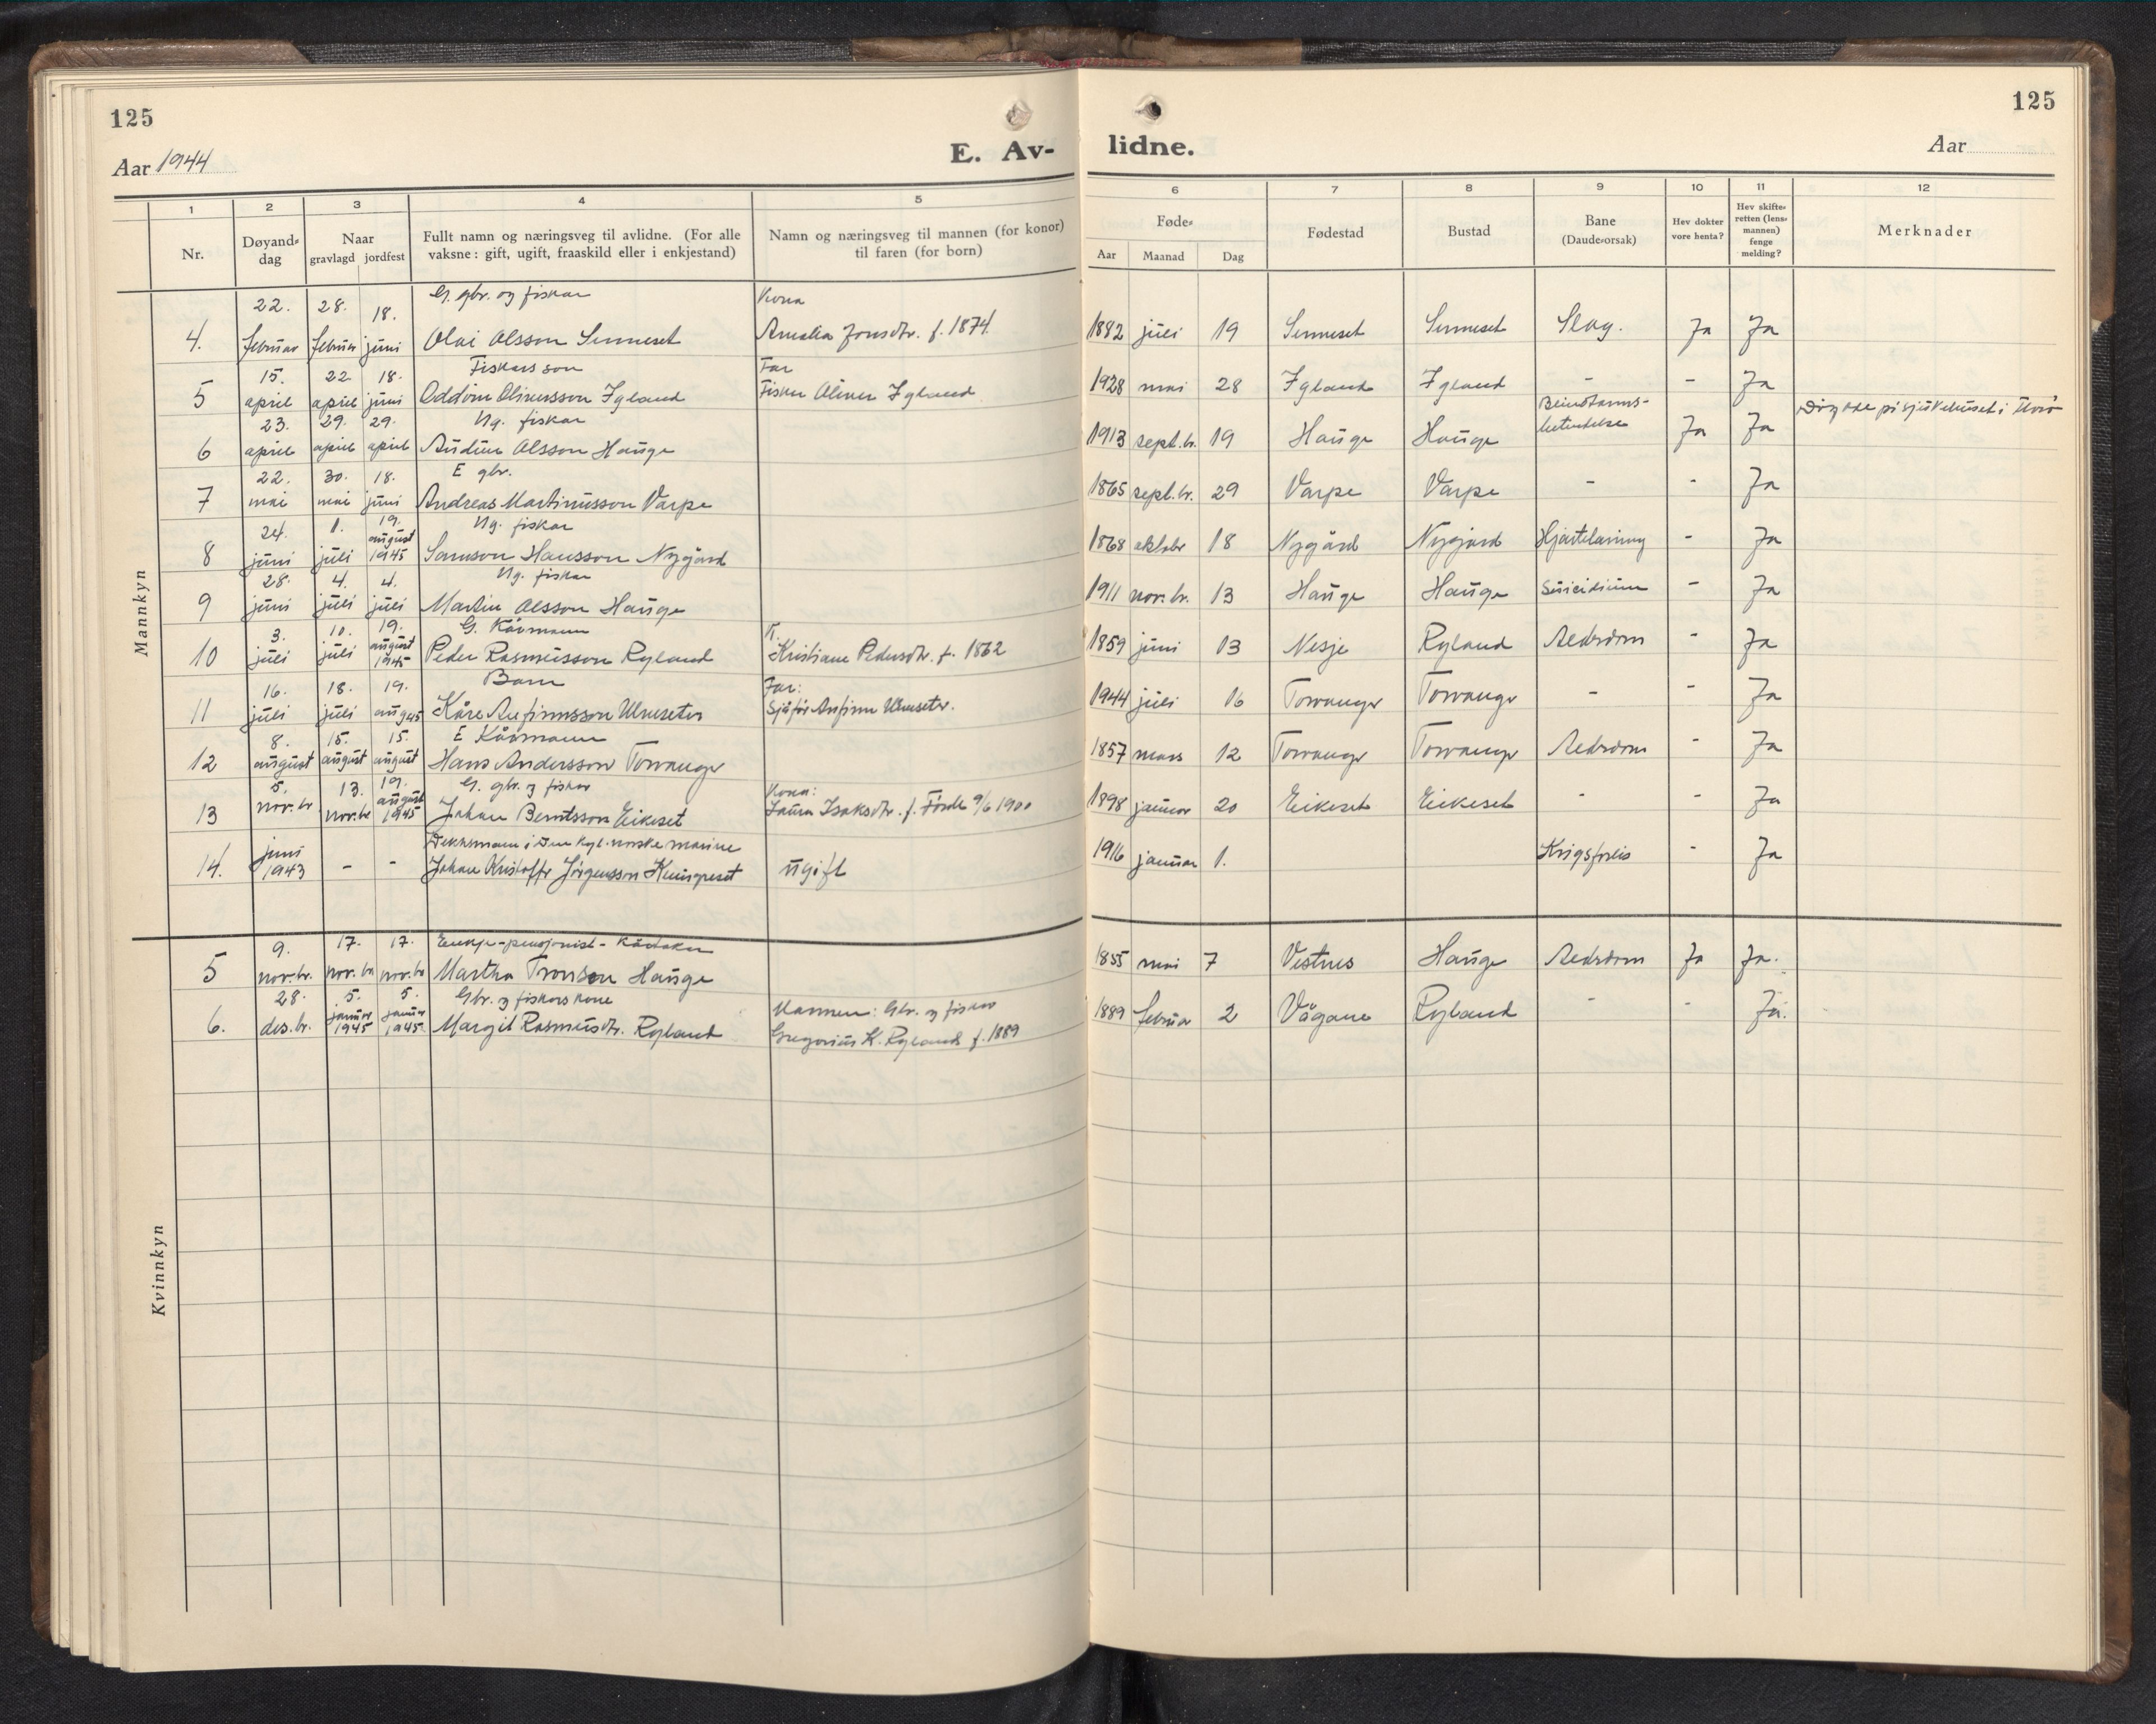 125
Aar 1944
E. Av-
1 2 3 4 5
Nr. Døyand-dag Naar gravlagd jordfest Fullt namn og næringsveg til avlidne. (For alle vaksne: gift, ugift, fraaskild eller i enkjestand) Namn og næringsveg til mannen (for konor) til faren (for born)
Mannkyn
22. 28. 18. G. gbr. og fiskar Kona
4. februar februar juni Olai Olsson Senneset Amalia Jonsdtr. f. 1874.
15. 22 18. Fiskars son Far
5 april april juni Oddvin Olinersson Igland Fiskar Oliner Igland
23. 29. 29. Ug. fiskar
6 april april april Audun Olsson Hauge
22. 30. 18. E gbr.
7 mai mai juni Andreas Martinusson Varpe
24. 1. 19. Ug. fiskar
8 juni juli august 1945 Samson Hansson Nygård
28. 4. 4. Ug. fiskar
9 juni juli juli Martin Olsson Hauge
3. 10. 19. G. Kårmann K.
10 juli juli august 1945 Peder Rasmusson Ryland Kristiane Pedersdtr. f. 1862
16. 18. 19. Barn Far:
11 juli juli aug 45 Kåre Anfinnsson Ulveseter Sjåfør Anfinn Ulveseter.
8. 15. 15. E Kårmann
12 august august august Hans Andersson Torvanger
5. 13. 19. G. gbr. og fiskar Kona:
13 nov.br. nov.br august 1945 Johan Berntsson Eikeset Laura Isaksdtr. f. Førde 9/6 1900
juni Dekksmann i Den Kgl. norske marine
14. 1943 - - Johan Kristoffer Jørgensson ugift
Kvinnkyn
9. 17. 17. Enkje-pensjonist-Kårtakar
5 nov.br. nov.br nov.br Martha Tronson Hauge
28. 5. 5. Gbr. og fiskars kone Mannen: Gbr. og fiskar
6. des.br. januar 1945 januar 1945 Margit Rasmusdtr. Ryland Gregorius K. Ryland f. 1889
125
lidne.
Aar
6 7 8 9 10 11 12
Føde- Fødestad Bustad Bane (Daude-orsak) Hev dokter vore henta? Hev skifte-retten (lens-mannen) fenge melding? Merknader
Aar Maanad Dag
1882 juli 19 Senneset Senneset Slag. Ja Ja
1928 mai 28 Igland Igland - - Ja
1913 sept.br. 19 Hauge Hauge Ja Ja
1865 sept.br. 29 Varpe Varpe - - Ja
1868 oktobr 18 Nygård Nygård Hjartelaming - Ja
1911 nov.br. 13 Hauge Hauge Suicidium - Ja
1859 juni 13 Nesje Ryland Aldrdom - Ja
1944 juli 16 Torvanger Torvanger - - Ja
1857 mars 12 Torvanger Torvanger Aldrdom - Ja
1898 januar 20 Eikeset Eikeset - - Ja
1916 januar 1. Krigsforlis - Ja
1855 mai 7 Vestnes Hauge Aldrdom Ja Ja.
1889 februar 2 Vågane Ryland - - Ja.